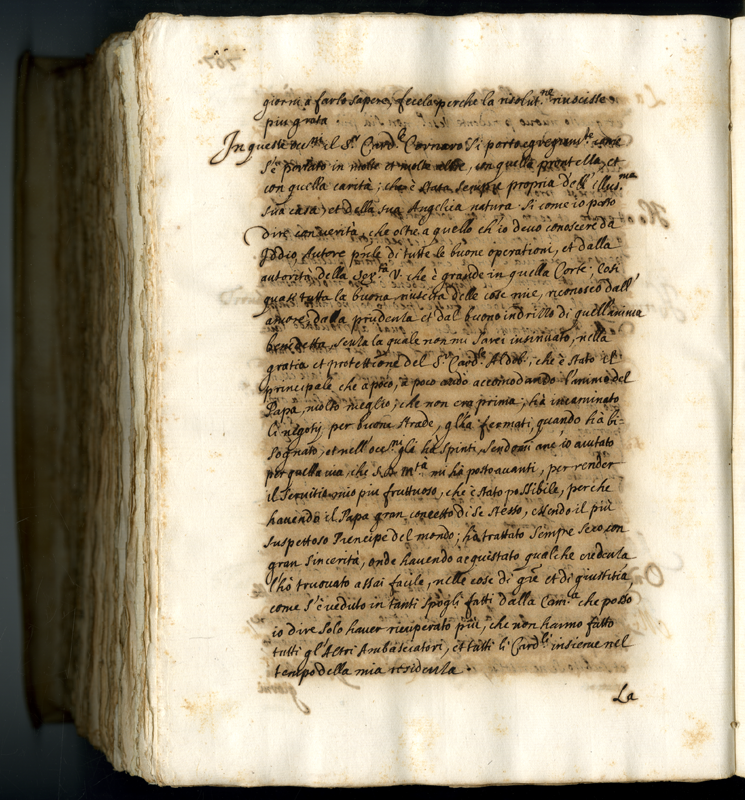 giorni à farlo sapere; fecelo perche la risolut.ne riuscisse
piu grata.
In queste occ.ni il S.r Card.le Cornaro si portò egregiam.te come
s'è portato in molte et molte altre, con quella prontezza, et
con quella carità, che è stata sempre propria dell' Illus.ma
sua casa, et della sua Angelica natura. Si come io posso
dire con verità, che oltre à quello ch'io devo conoscere da
Iddio, Autore pnle di tutte le buone operationi, et dalla
autorità della Ser.tà V. che è grande in quella Corte; Così
quasi tutta la buona riuscita delle cose mie, riconosco dall'
amore, dalla prudenza et dal buono indrizzo di quell'anima
benedetta, senza la quale non mi sarei insinuato, nella
gratia et protettione del S.r Card.le Aldob., che è stato il
principale, che à poco, à poco andò accomodando l'animo del
Papa, molto meglio, che non era prima; hà incaminato
li negotij per buone strade, gl'hà fermati, quando hà bi-
sognato, et nell'occ.ni gli hà spinti, sendomi anc'io aiutato
per quella via, che S. D. M.tà mi hà posto avanti, per render
il servitio mio piu fruttuoso, che è stato possibile, perche
havendo il Papa gran concetto di se stesso, essendo il più
suspettoso Prencipe del mondo; hò trattato sempre seco con
gran sincerità, onde havendo acquistato qualche credenza
l'hò truovato assai facile, nelle cose di gre et di giustitia,
come s'è veduto in tanti spogli fatti dalla Cam.ra che posso
io dire solo haver ricuperato più, che non hanno fatto
tutti gl'Altri Ambasciatori, et tutti li Card.li insieme nel
tempo della mia residenza.
La